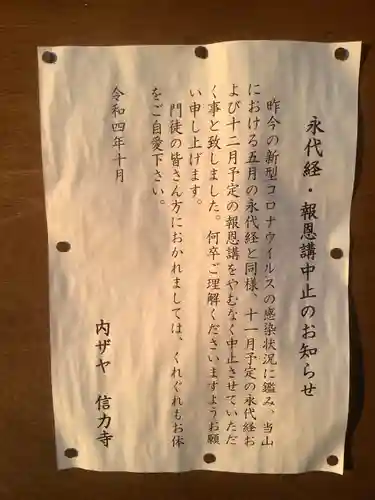 永代経・報恩講中止のお知らせ
昨今の新型コロナウイルスの感染状況に鑑み、当山
における五月の永代経と同様、十一月予定の永代経お
よび十二月予定の報恩講をやむなく中止させていただ
く事と致しました。何卒ご理解くださいますようお願
い申し上げます。
門徒の皆さん方におかれましては、くれぐれもお体
をご自愛下さい。
令和四年十月
内ザヤ 信力寺